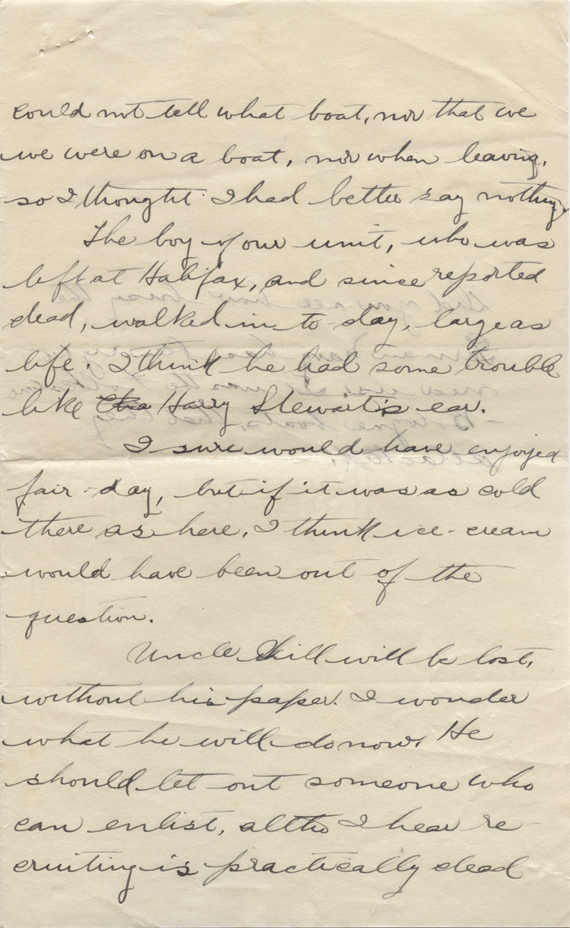 could not tell what boat, nor that we
we were on a boat, nor when leaving,
so I thought I had better say nothing.
The boy of our unit, who was
left at Halifax, and since reported
dead, walked in to-day, large as
life. I think he had some trouble
like Harry Stewart's ear.
I sure would have enjoyed
fair-day, but if it was as cold
there as here, I think ice-cream
would have been out of the
question.
Uncle will be lost,
without his paper. I wonder
what he will do now. He
should let out someone who
can enlist, altho I hear re-
cruiting is practically dead